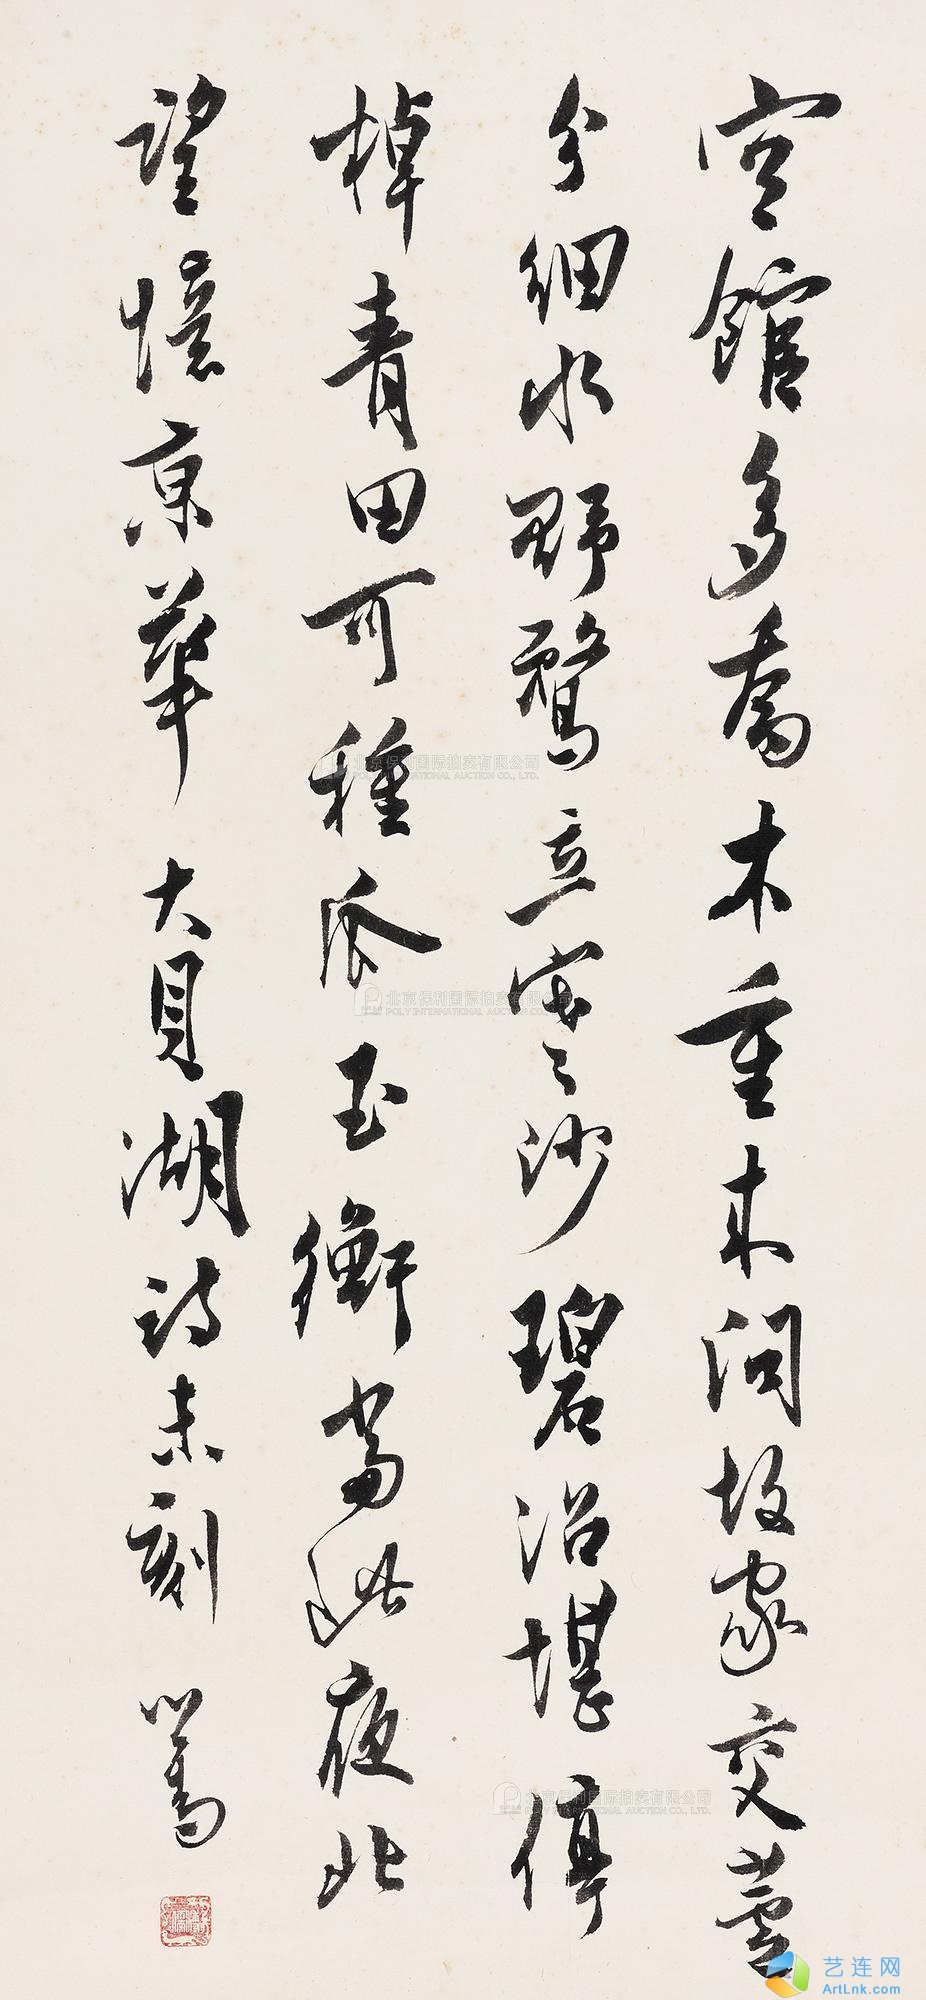 空館多喬木重來問故家交蘆
分細水野鶩立寒沙碧沼堪停
棹青田可種瓜玉衡當此夜北
望憶京華 大貝湖詩未刻 心畬
北京保利国际拍卖有限公司
POLY INTERNATIONAL AUCTION CO., LTD.
北京保利国际拍卖有限公司
POLY INTERNATIONAL AUCTION CO., LTD.
北京保利国际拍卖有限公司
POLY INTERNATIONAL AUCTION CO., LTD.
艺连网
ArtLnk.com